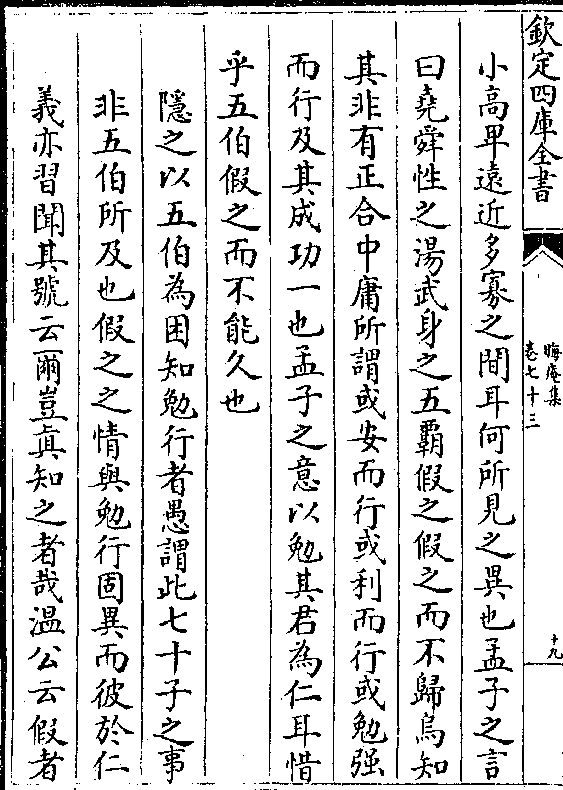 欽定四庫全書
晦庵集
卷七十三
十九
小高卑遠近多寡之間耳何所見之異也孟子之言
曰堯舜性之湯武身之五覇假之假之而不歸烏知
其非有正合中庸所謂或安而行或利而行或勉强
而行及其成功一也孟子之意以勉其君為仁耳惜
乎五伯假之而不能久也
隱之以五伯為困知勉行者愚謂此七十子之事
非五伯所及也假之之情與勉行固異而彼於仁
義亦習聞其號云爾豈真知之者哉温公云假者